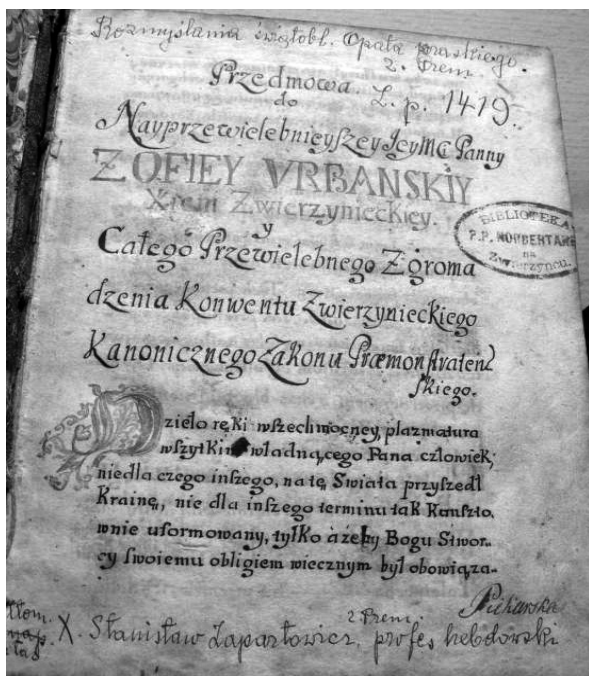 Rozmyślania świętobl. Opata praskiego.
z. Prem.
Przedmowa. L. p. 1419.
do
Nayprzewielebnieyszey Jey Mć Panny
ZOFIEY VRBANSKIY
Xieni Zwierzynieckiey.
y
Całego Przewielebnego Zgroma
dzenia Konwentu Zwierzynieckiego
Kanonicznego Zakonu Præmonstrateń
skiego.
BIBLIOTEKA
P.P. NORBERTANEK
na
Zwierzyńcu.
Dzieło ręki wszechmocney, plazmatura
wszytkim władnącego Pana człowiek,
niedla czego inszego, na tę Swiata przyszedł
Krainę, nie dla inszego terminu tak Kunszto.
wnie uformowany, tylko ażeby Bogu Stwor..
cy swoiemu obligiem wiecznym był obowiąza-
z. Prem.
X. Stanisław Zapartowicz profes hebdowski